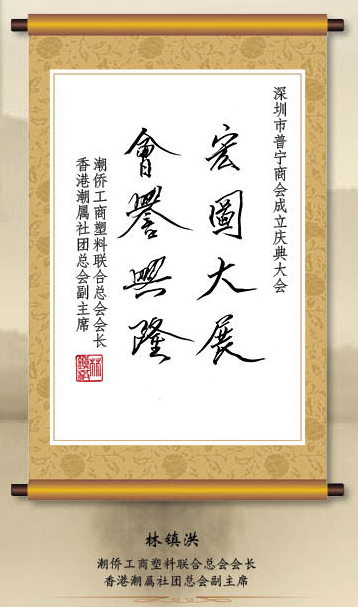 深圳市普宁商会成立庆典大会
宏圖大展
會譽興隆
潮侨工商塑料联合总会会长
香港潮属社团总会副主席
林镇洪
潮侨工商塑料联合总会会长
香港潮属社团总会副主席